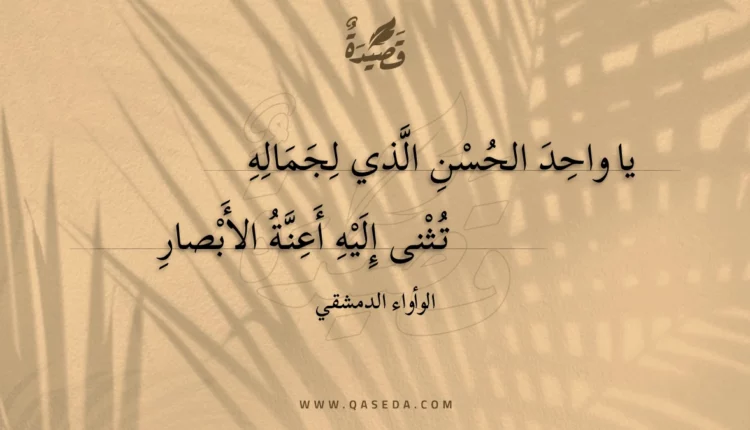 قَصِيْدَةٌ
يا واحِدَ الحُسْنِ الَّذي لِجَمَالِهِ
تُثْنى إِلَيْهِ أَعِنَّةُ الأَبْصارِ
الوأواء الدمشقي
WWW.QASEDA.COM